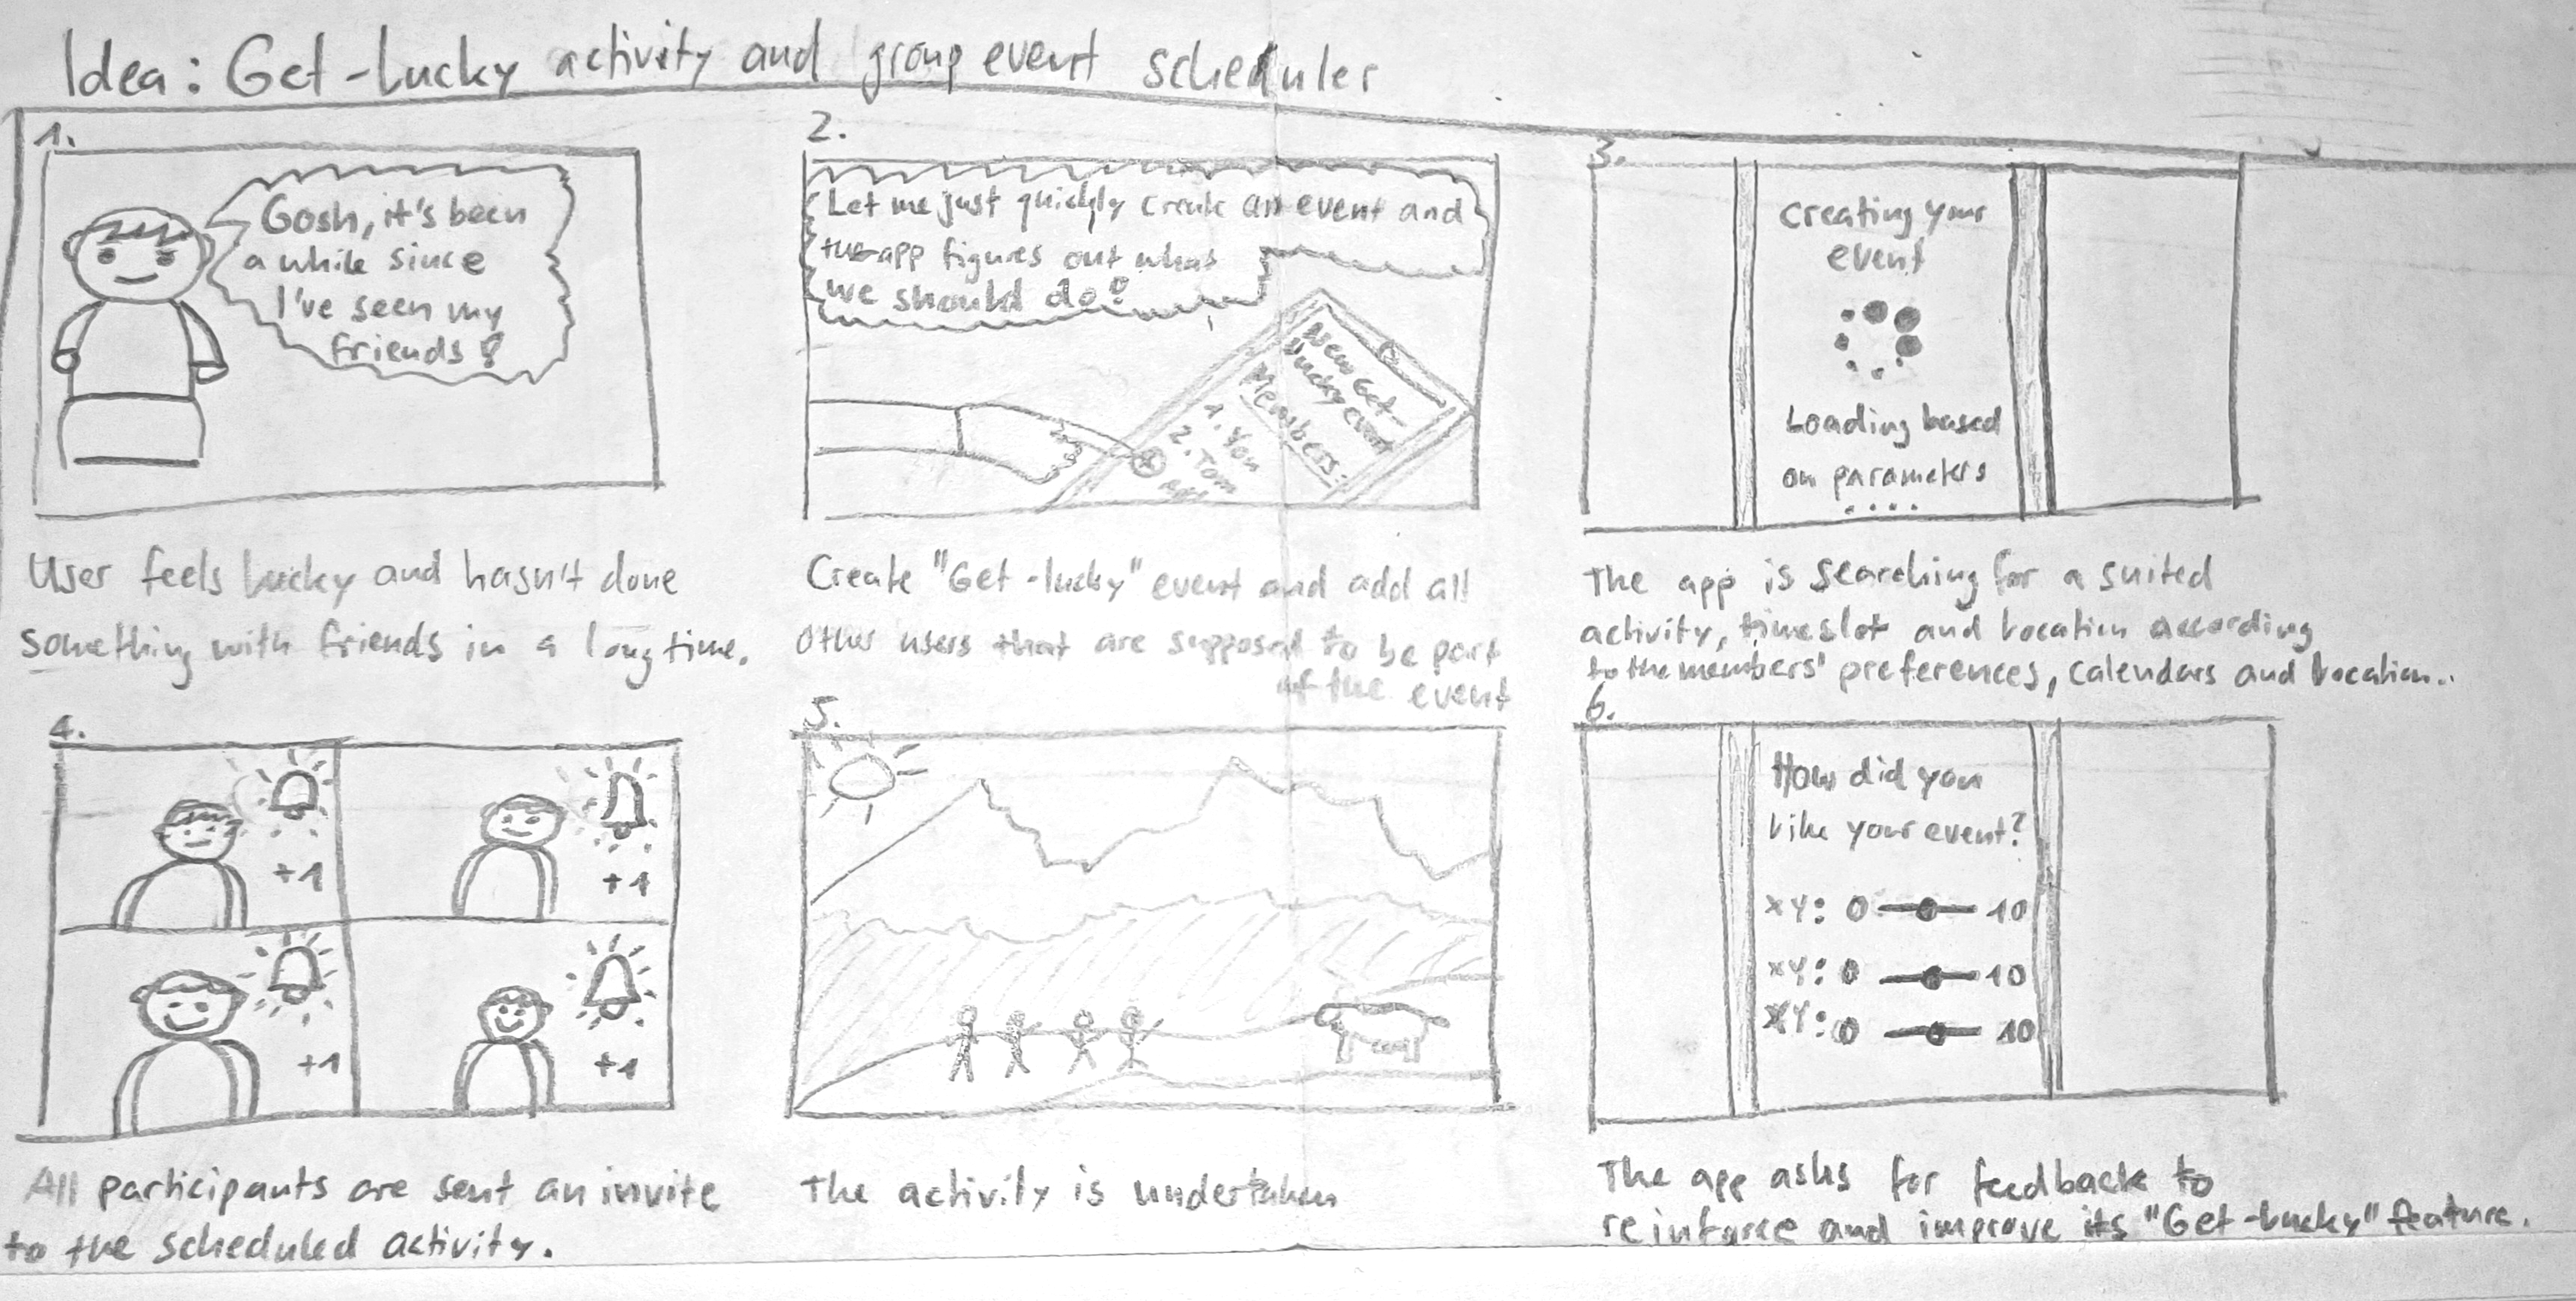 Idea: Get-Lucky activity and group event scheduler
1.
Gosh, it's been
a while since
I've seen my
friends!
User feels lucky and hasn't done
something with friends in a long time.
2.
Let me just quickly create an event and
the app figures out what
we should do!
New Get-
Lucky event
Members:
1. You
2. Tom
Create "Get-lucky" event and add all
other users that are supposed to be part
of the event
3.
Creating your
event
Loading based
on parameters
....
The app is searching for a suited
activity, timeslot and location according
to the members' preferences, calendars and location..
4.
+1
+1
+1
+1
All participants are sent an invite
to the scheduled activity.
5.
The activity is undertaken
6.
How did you
like your event?
XY: 0 10
XY: 0 10
XY: 0 10
The app asks for feedback to
reinforce and improve its "Get-lucky" feature.